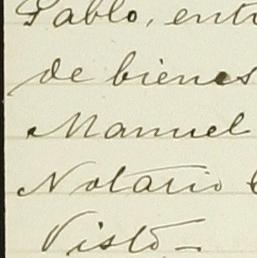 Pablo, entr
de bienes
Manuel
Notario
Visto —